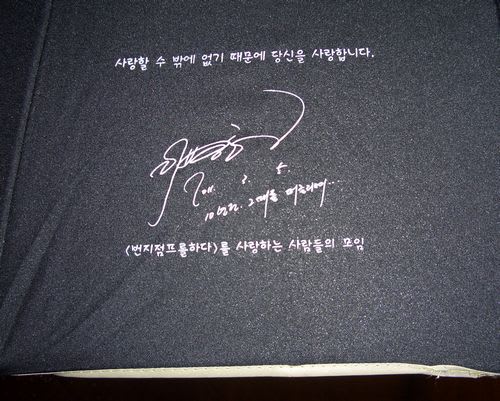 사랑할 수 밖에 없기 때문에 당신을 사랑합니다.
10년전. 그때를
<번지점프를하다>를 사랑하는 사람들의 모임